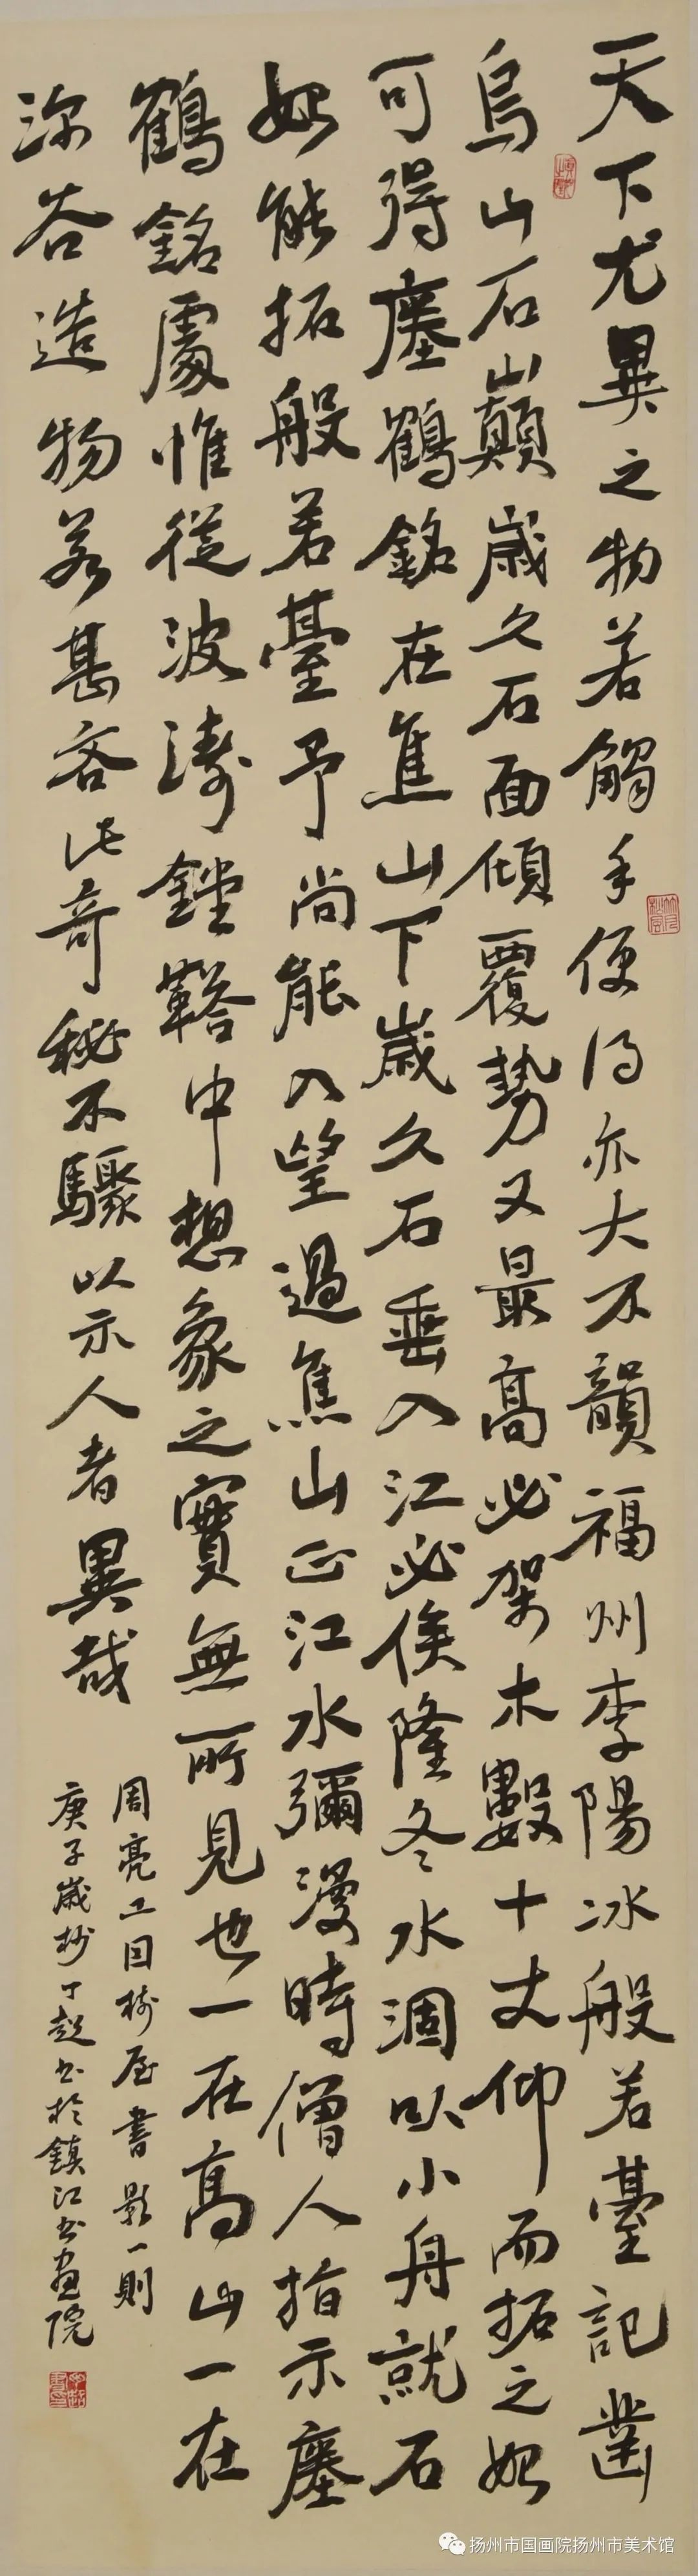 天下尤異之物若觸手便得亦大不韻福州李陽冰般若臺記鑿
烏山石巔歲久石面傾覆勢又最高必架木數十丈仰而拓之始
可得瘞鶴銘在焦山下歲久石垂入江必俟隆冬水涸以小舟就石
始能拓般若臺予尚能入望過焦山正江水彌漫時僧人指示瘞
鶴銘處惟從波濤鏜鞳中想象之實無所見也一在高山一在
深谷造物若甚吝此奇秘不驟以示人者異哉
周亮工因樹屋書影一則
庚子歲杪丁超書於鎮江書畫院
扬州市国画院扬州市美术馆